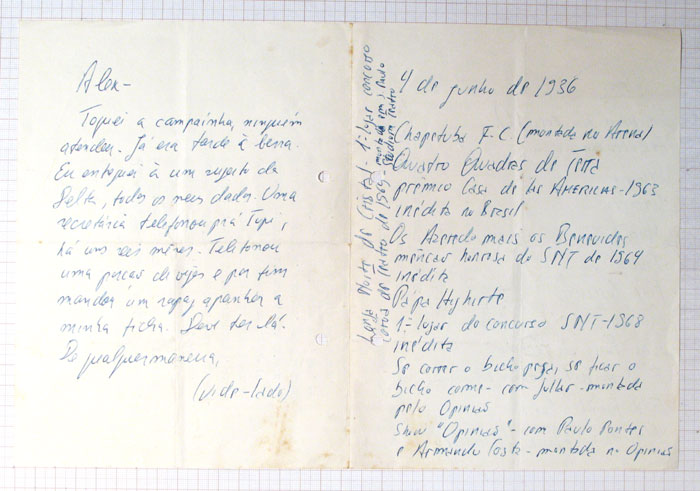 Alex-
Toquei a campainha, ninguém
atendeu. Já era tarde à bessa.
Eu entreguei à um sujeito da
Delta, todos os meus dados. Uma
secretária telefonou prá Tupi,
há uns seis mêses. Telefonou
uma porção de vezes e por fim
mandou um rapaz apanhar a
minha ficha. Deve ter lá.
De qualquer maneira,
(vide-lado)
4 de junho de 1936
Chapetuba F.C. (montada no Arena)
Quatro Quadras de Terra
prêmio Casa de las Americas-1963
inédita no Brasil
Os Azeredo mais os Benevides
menção honrosa do SNT de 1964
inédita
Papa Highirte
1º lugar do concurso SNT-1968
inédita
Se correr o bicho pega, se ficar o
bicho come - com Gullar - montada
pelo Opinião
Show "Opinião" - com Paulo Pontes
e Armando Costa - montada no Opinião
Longa Noite de Cristal - 1º lugar concurso
Coroa de Teatro de 1969 - montada em S. Paulo
Studium Teatro